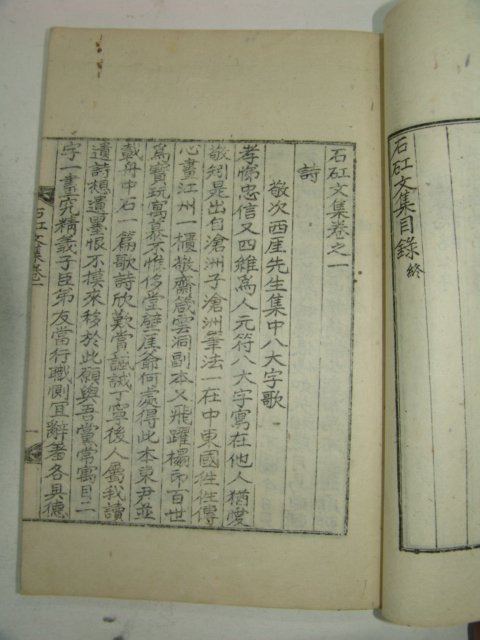 石矼文集目錄 終
石矼文集卷之一
詩
敬次西厓先生集中八大字歌
孝悌忠信又四維爲人元符八大字寫在他人猶愛
敬矧是出自滄洲子滄洲筆法一在中東國性性傳
心畫江州一櫃敬齋箴雲洞副本又飛躍榻而百世
爲寶玩寓慕不惟侈堂壁厓爺何處得此本東尹並
載舟中石一篇歌詩欣歎賞諔誠丁寧後人屬我讀
遺詩想遺墨恨不摸來移於此願與吾黨常寓目二
字一畫究精義子臣弟友當行職惻宜辭著各具德
石矼文集卷一